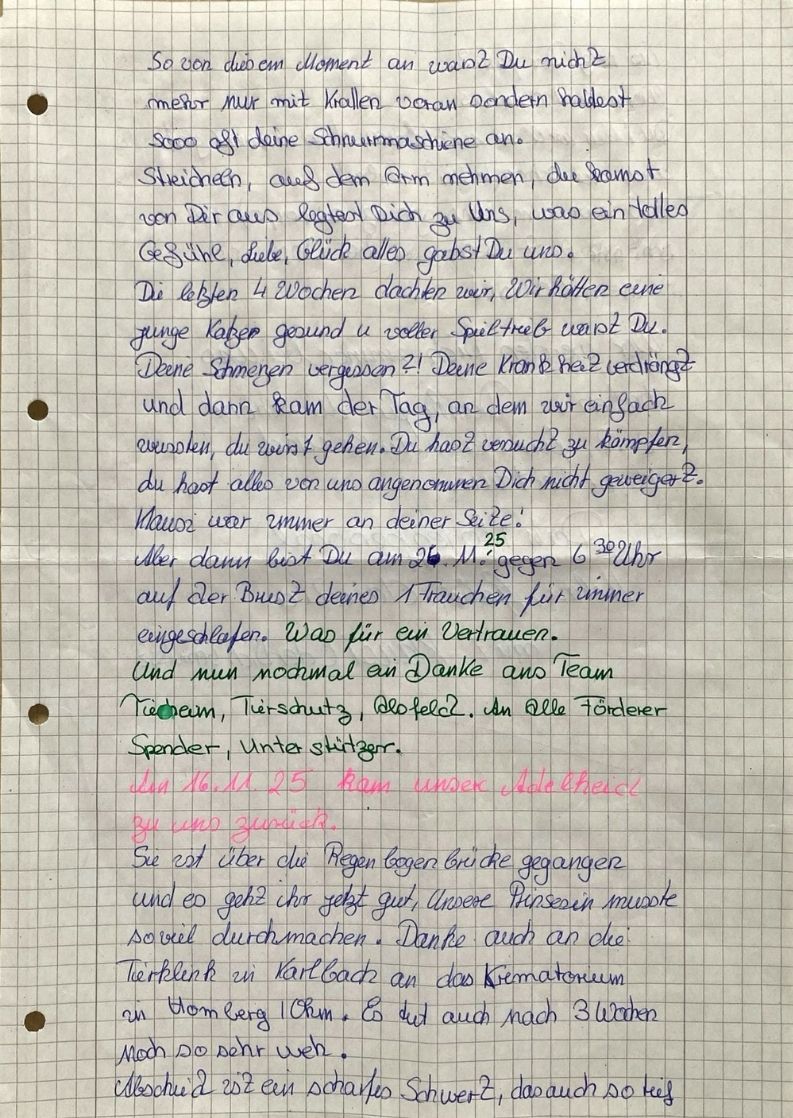 So von diesem Moment an warst Du nicht
mehr nur mit Krallen voran sondern haldest
sooo oft deine Schnurrmaschiene an.
Streicheln, auf dem Arm nehmen, du kamst
von Dir aus legtest Dich zu Uns, was ein tolles
Gefühl, Liebe, Glück alles gabst Du uns.
Die letzten 4 Wochen dachten wir, Wir hätten eine
junge Katze gesund u voller Spieltrieb warst Du.
Deine Schmerzen vergessen?! Deine Krankheit verdrängt
und dann kam der Tag, an dem wir einfach
wussten, du wirst gehen. Du hast versucht zu kämpfen,
du hast alles von uns angenommen Dich nicht geweigert.
Klausi war immer an deiner Seite!
Aber dann bist Du am 11. 25 gegen 6 30 Uhr
auf der Brust deines Frauchen für immer
eingeschlafen. Was für ein Vertrauen.
Und nun nochmal ein Danke ans Team
Tierheim, Tierschutz, Alsfeld. An Alle Förderer
Spender, Unterstützer.
Am 16.11.25 kam unser Adelheid
zu uns zurück.
Sie ist über die Regenbogenbrücke gegangen
und es geht ihr jetzt gut, Unsere Prinsesin musste
soviel durchmachen. Danke auch an die
Tierklinik in Karlbach an das Krematorium
in Homberg / Ohm. Es tut auch nach 3 Wochen
noch so sehr weh.
Abschied ist ein scharfes Schwert, das auch so tief